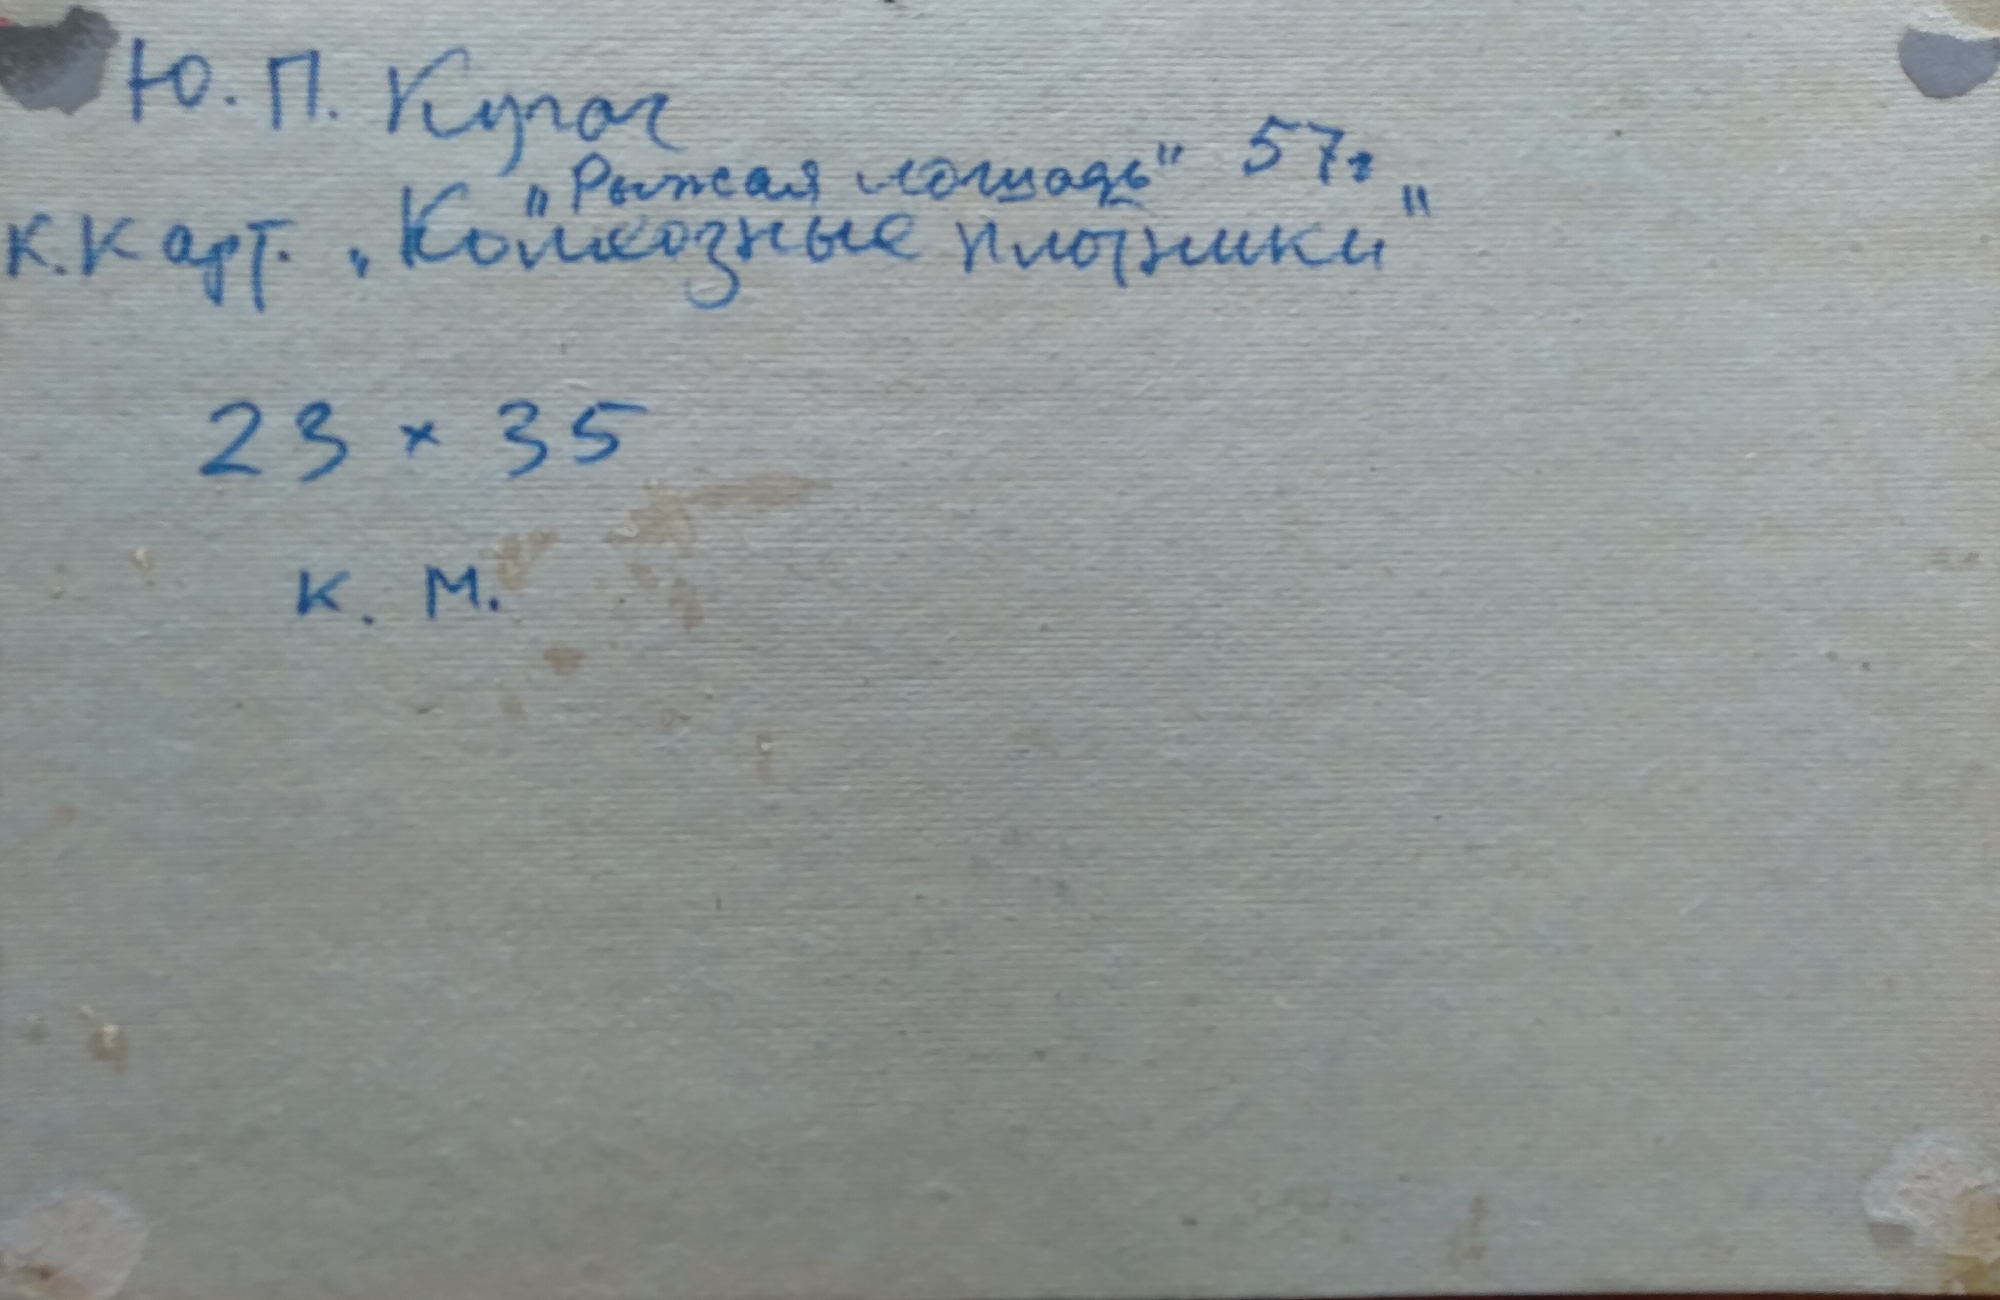 Ю. П. Кугач
"Рыжая лошадь" 57г
К. Карт. „Колхозные плотники"
23 × 35
К. М.